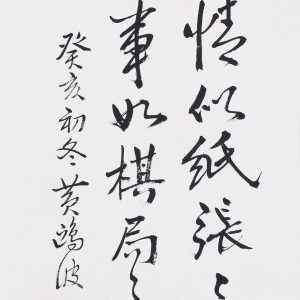 情似紙張〻
事如棋局〻
癸亥初冬黄鴻波